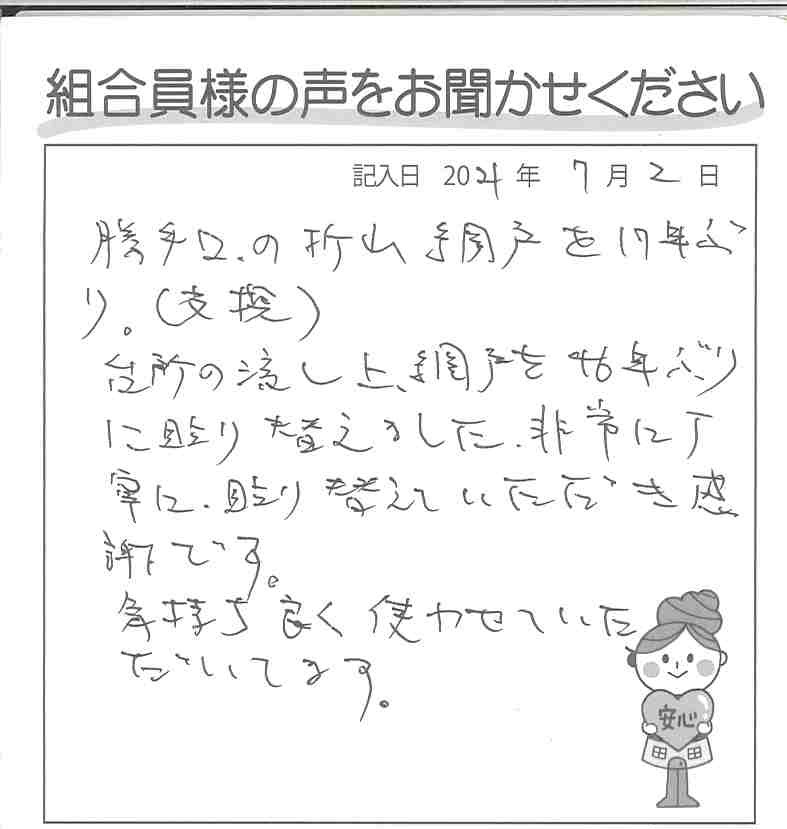 組合員様の声をお聞かせください
記入日 2024 年 7 月 2 日
勝手口の折山網戸を17年ぶ
り。(支援)
台所の流し上、網戸を46年ぶり
に貼り替えました。非常に丁
寧に、貼り替えていただき感
謝です。
気持ち良く使わせていた
だいてます。
安心